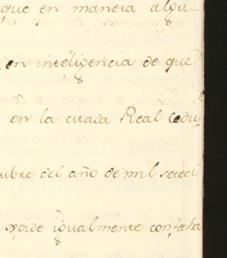 que en manera algu-
en inteligencia de que
en la citada Real Cedu
ubre del año de mil seteci
igualmente